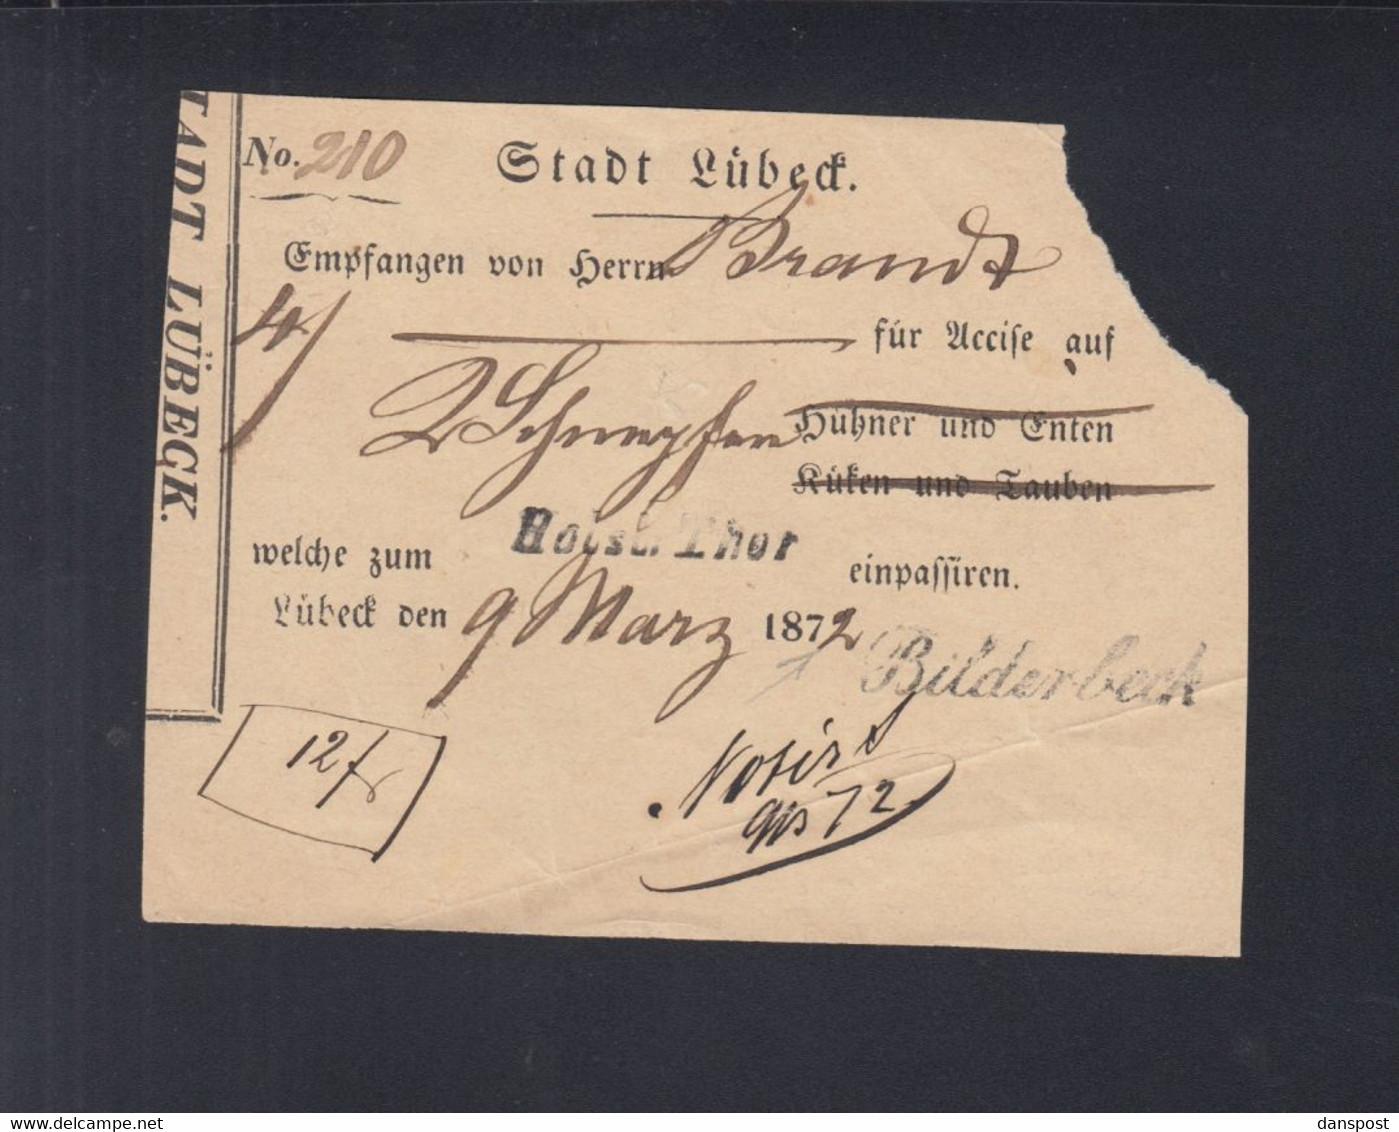 TADT LÜBECK.
No. 210
Stadt Lübeck.
Empfangen von Herrn Brandt
4
für Accise auf
2 Schnepfen Hühner und Enten
Küken und Tauben
welche zum Holst. Thor einpassiren.
Lübeck den 9 März 1872
Bilderbeck
12
Notirt
9/3 72
danspost
delcampe.net